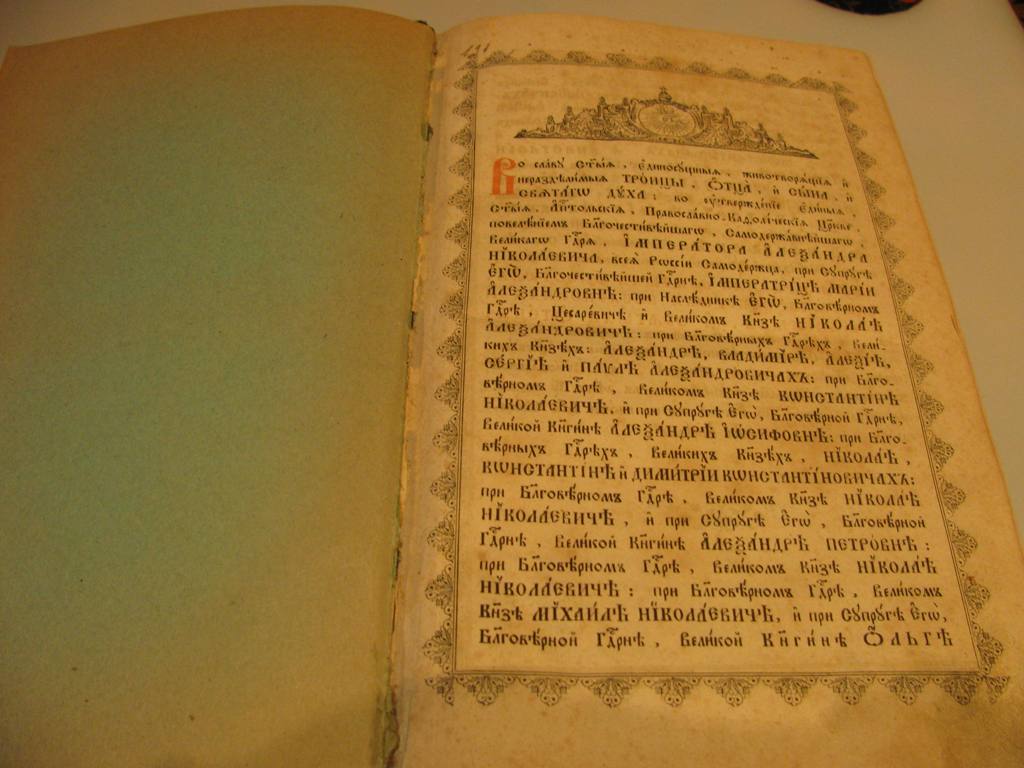 Во славу Ст҃ыѧ, Единосущныѧ, животворѧщіѧ и
нераздѣлимыѧ ТРОИЦЫ, Ѻтца, и Сына, и
Свѧтагѡ Дꙋха: во ᲂутвержденіе Единыѧ,
Ст҃ыѧ, Ап҃тольскіѧ, Православно-Каѳолическіѧ Цр҃кве,
повелѣніемъ Бл҃гочестивѣйшагѡ, Самодержавнѣйшагѡ,
Великагѡ Гдⷭ҇рѧ, ІМПЕРАТОРА АЛЕѮАНДРА
НІКОЛАЕВИЧА, всеѧ Рѡссіи Самодержца, при Сꙋпрꙋгѣ
ЕГѠ̀, Бл҃гочестивѣйшей Гдⷭ҇рнѣ, ІМПЕРАТРИЦѢ МАРІИ
АЛЕѮАНДРОВНѢ: при Наслѣдникѣ ЕГѠ̀, Бл҃говѣрномъ
Гдⷭ҇рѣ, Цесаревичѣ и Великомъ Кн҃зѣ НІКОЛАѢ
АЛЕѮАНДРОВИЧѢ: при Бл҃говѣрныхъ Гдⷭ҇рѣхъ, Вели-
кихъ Кн҃зѣхъ: АЛЕѮАНДРѢ, ВЛАДИМІРѢ, АЛЕѮІѢ,
СЕРГІѢ и ПАѴЛѢ АЛЕѮАНДРОВИЧАХЪ: при Бл҃го-
вѣрномъ Гдⷭ҇рѣ, Великомъ Кн҃зѣ КѠНСТАНТІНѢ
НІКОЛАЕВИЧѢ, и при Сꙋпрꙋгѣ Егѡ̀, Бл҃говѣрной Гдⷭ҇рнѣ,
Великой Кн҃гинѣ АЛЕѮАНДРѢ ІѠСИФОВНѢ: при Бл҃го-
вѣрныхъ Гдⷭ҇рѣхъ, Великихъ Кн҃зѣхъ, НІКОЛАѢ,
КѠНСТАНТІНѢ и ДИМИТРІИ КѠНСТАНТІНОВИЧАХЪ:
при Бл҃говѣрномъ Гдⷭ҇рѣ, Великомъ Кн҃зѣ НІКОЛАѢ
НІКОЛАЕВИЧѢ, и при Сꙋпрꙋгѣ Егѡ̀, Бл҃говѣрной
Гдⷭ҇рнѣ, Великой Кн҃гинѣ АЛЕѮАНДРѢ ПЕТРОВНѢ:
при Бл҃говѣрномъ Гдⷭ҇рѣ, Великомъ Кн҃зѣ НІКОЛАѢ
НІКОЛАЕВИЧѢ: при Бл҃говѣрномъ Гдⷭ҇рѣ, Великомъ
Кн҃зѣ МІХАИЛѢ НІКОЛАЕВИЧѢ, и при Сꙋпрꙋгѣ Егѡ̀,
Бл҃говѣрной Гдⷭ҇рнѣ, Великой Кн҃гинѣ ѺЛЬГѢ